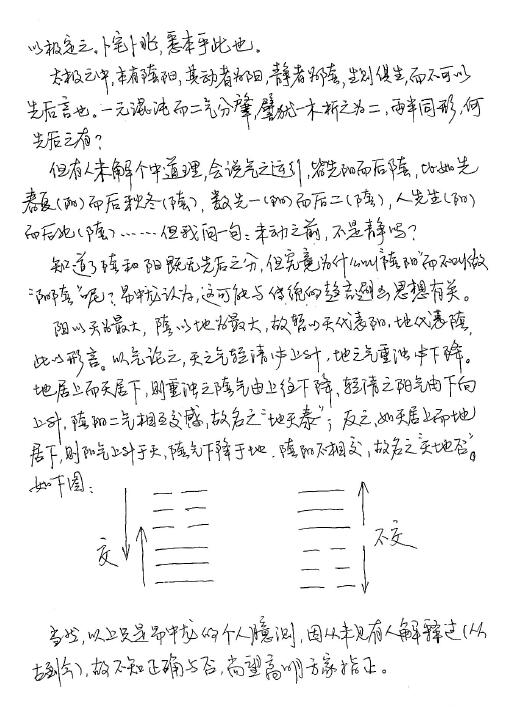 以极定之。卜宅卜兆，悉本乎此也。
太极之中，本有阴阳，其动者为阳，静者为阴，生则俱生，而不可以
先后言也。一元混沌而二气分肇，譬犹一木析之为二，两半同形，何
先后之有？
但有人未解个中道理，会说气之运行，皆先阳而后阴，比如先
春夏（阳）而后秋冬（阴），数先一（阳）而后二（阴），人先生（阳）
而后死（阴）……但我问一句：未动之前，不是静吗？
知道了阴和阳既无先后之分，但究竟为什么叫“阴阳”而不叫做
“阳阴”呢？ 中龙认为，这可能与传统的 思想有关。
阳以天为最大，阴以地为最大，故暂以天代表阳，地代表阴，
此以形言。以气论之，天之气轻清中上升，地之气重浊中下降。
地居上而天居下，则重浊之阴气由上往下降，轻清之阳气由下向
上升，阴阳二气相互交感，故名之“地天泰”；反之，如天居上而地
居下，则阳气上升于天，阴气下降于地，阴阳不相交，故名之“天地否”。
如下图：
交
不交
当然，以上只是 中龙的个人臆测，因从未见有人解释过（从
古到今），故不知正确与否，尚望高明方家指正。